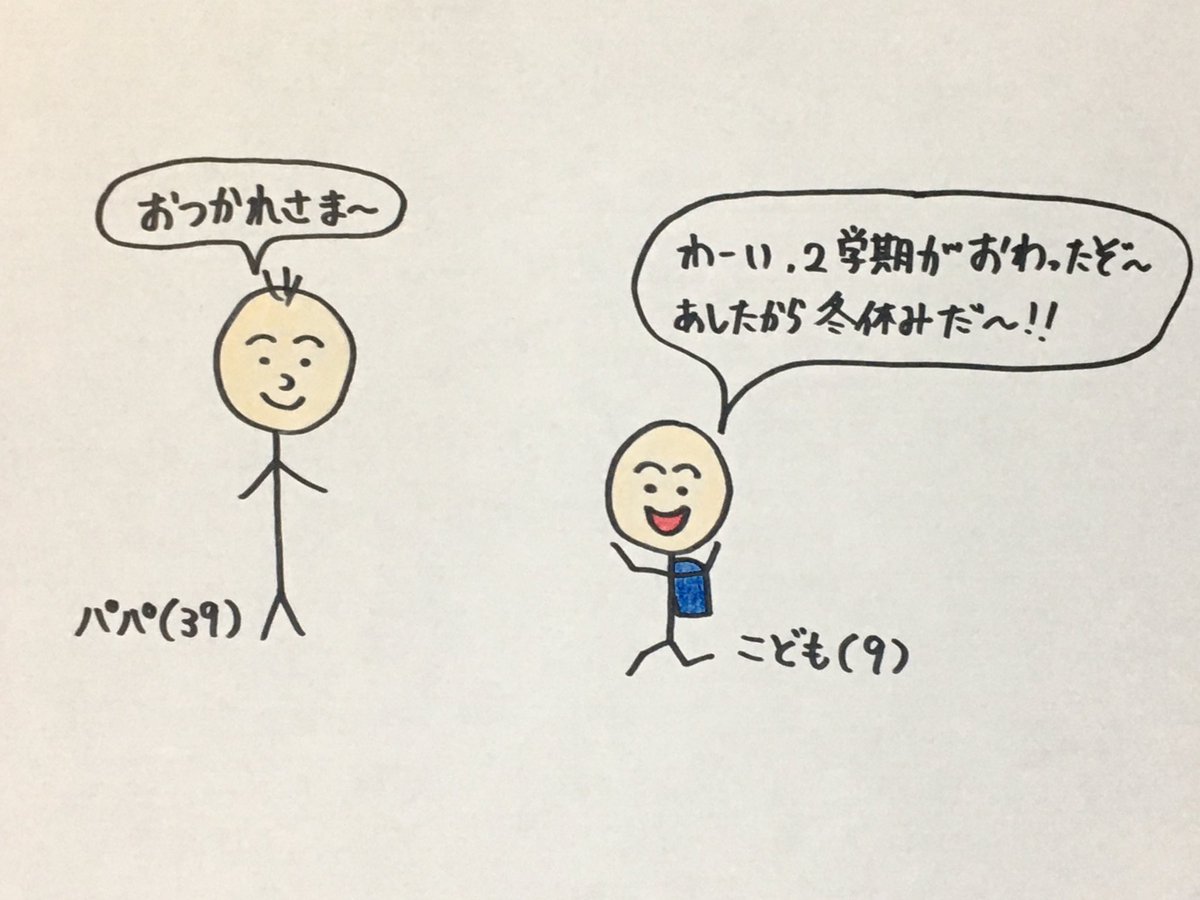 おつかれさま〜
わーい、2学期がおわったぞ〜
あしたから冬休みだ〜!!
パパ(39)
こども(9)